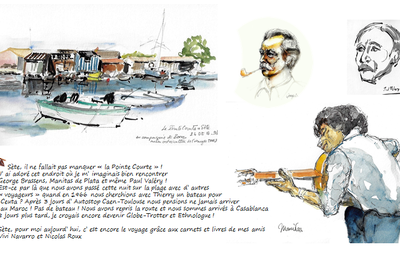 La Pointe Courte à Sète
P. Valéry
Manitas
Sète, il ne fallait pas manquer « la Pointe Courte » !
J' ai adoré cet endroit où je m' imaginais bien rencontrer
George Brassens, Manitas de Plata et même Paul Valéry !
Est-ce par là que nous avons passé cette nuit sur la plage avec d' autres
« voyageurs » quand en 1966 nous cherchions avec Thierry un bateau pour
Ceuta ? Après 3 jours d' Autostop Caen-Toulouse nous pensions ne jamais arriver
au Maroc ! Pas de bateau ! Nous avons repris la route et nous sommes arrivés à Casablanca
jours plus tard, je croyais encore devenir Globe-Trotter et Ethnologue !
Sète, pour moi aujourd' hui, c' est encore le voyage grâce aux carnets et livres de mes amis
Navarro et Nicolas Roux